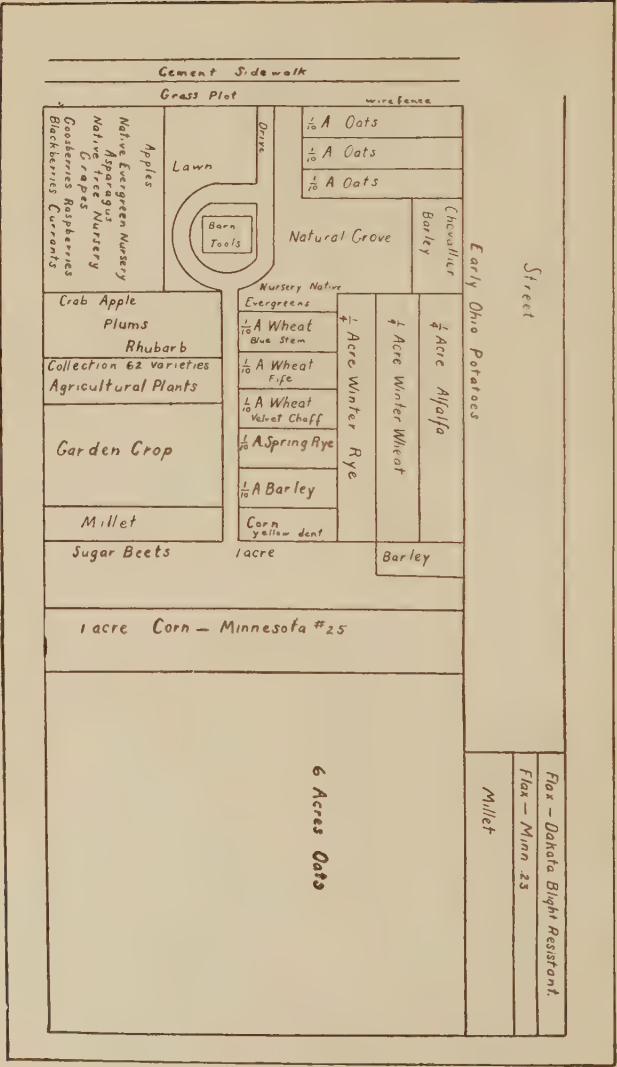 Cement Sidewalk
Grass Plot
wire fence
Apples
Native Evergreen Nursery
Asparagus
Native tree Nursery
Grapes
Goosberries Raspberries
Blackberries Currants
Lawn
Drive
Barn
Tools
1/10 A Oats
1/10 A Oats
1/10 A Oats
Natural Grove
Chevallier
Barley
Early Ohio Potatoes
Street
Nursery Native
Evergreens
Crab Apple
Plums
Rhubarb
Collection 62 varieties
Agricultural Plants
Garden Crop
Millet
1/10 A Wheat
Blue Stem
1/10 A Wheat
Fife
1/10 A Wheat
Velvet Chaff
1/10 A Spring Rye
1/10 A Barley
Corn
yellow dent
1/4 Acre Winter Rye
1/4 Acre Winter Wheat
1/4 Acre Alfalfa
Sugar Beets 1 acre
Barley
1 acre Corn — Minnesota #25
6 Acres Oats
Millet
Flax — Minn .25
Flax — Dakota Blight Resistant.